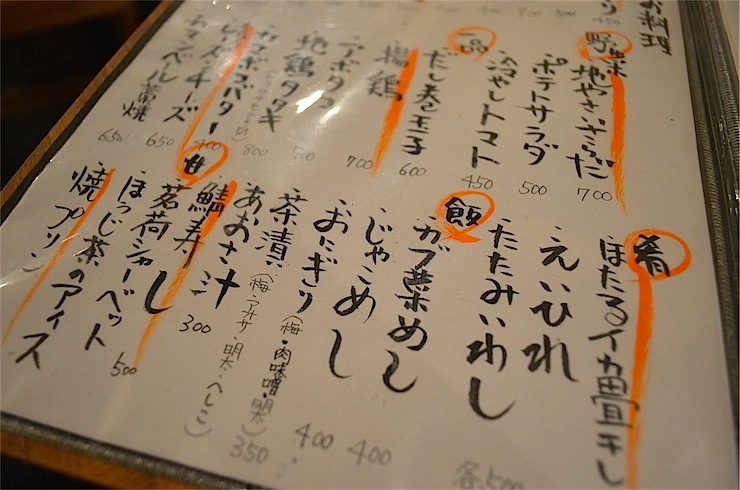 お料理
450
野菜
・地やさいさらだ
700
・ポテトサラダ
500
一品
・冷やしトマト
450
・だし巻玉子
600
・揚鶏
700
・アボカド
700
・地鶏タタキ
800
・カマボコバター
400
・レーズンチーズ
650
・カマンベール藁焼
650
肴
・ほたるイカ畳干し
・えいひれ
・たたみいわし
各500
飯
・カブ葉めし
400
・じゃこめし
400
・おにぎり（梅・肉味噌・明太）
350
・茶漬（梅・アオサ・明太・へしこ）
・あおさ汁
300
・鯖寿し
甘
・茗荷シャーベット
500
・ほうじ茶のアイス
・焼プリン